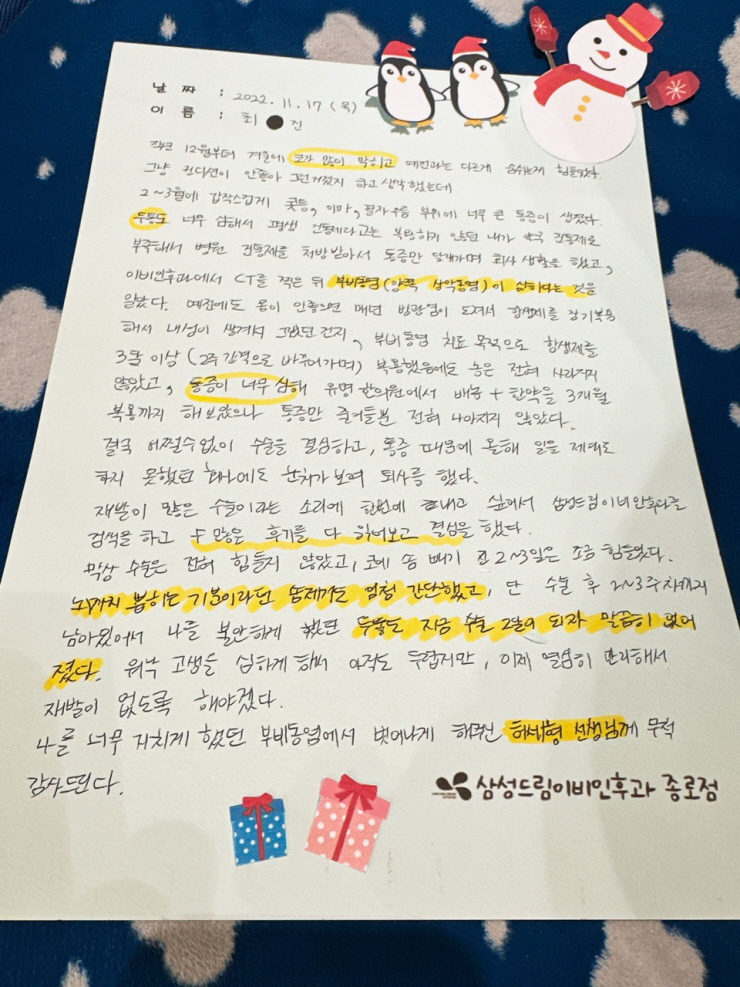 날 짜 : 2022. 11. 17 (목)
이 름 : 최 ● 진
작년 12월부터 겨울에 코가 많이 막히고 예전과는 다르게 숨쉬는게 힘들었다.
그냥 컨디션이 안좋아 그런거겠지 하고 생각했는데
2~3월에 갑작스럽게 콧등, 이마, 팔자주름 부위에 너무 큰 통증이 생겼다.
두통도 너무 심해서 평생 진통제라고는 복용하지 않았던 내가 약국 진통제로
부족해서 병원 진통제를 처방받아서 통증만 달래가며 회사 생활을 했고,
이비인후과에서 CT를 찍은 뒤 부비동염(양쪽 상악동염)이 심하다는 것을
알았다. 예전에도 몸이 안좋으면 매년 방광염이 도져서 항생제를 장기복용
해서 내성이 생겨서 그랬던건지, 부비동염 치료 목적으로 항생제를
3달 이상 (2주 간격으로 바꾸어가며) 복용했음에도 농은 전혀 사라지지
않았고, 통증이 너무 심해 유명 한의원에서 배농 + 한약을 3개월
복용까지 해보았으나 통증만 줄어들뿐 전혀 나아지지 않았다.
결국 어쩔수없이 수술을 결심하고, 통증 때문에 올해 일을 제대로
하지 못했던 회사에도 눈치가 보여 퇴사를 했다.
재발이 많은 수술이라는 소리에 한번에 끝내고 싶어서 삼성드림이비인후과를
검색을 하고 수많은 후기를 다 읽어보고 결심을 했다.
막상 수술은 전혀 힘들지 않았고, 코에 솜 빼기 전 2~3일은 조금 힘들었다.
뇌까지 뽑히는 기분이라던 솜제거도 엄청 간단했고, 단 수술 후 2~3주차까지
남아있어서 나를 불안하게 했던 두통도 지금 수술 2달이 되자 말끔히 없어
졌다. 워낙 고생을 심하게 해서 아직도 두렵지만, 이제 열심히 관리해서
재발이 없도록 해야겠다.
나를 너무 지치게 했던 부비동염에서 벗어나게 해주신 허세형 선생님께 무척
감사드린다.
삼성드림이비인후과 종로점